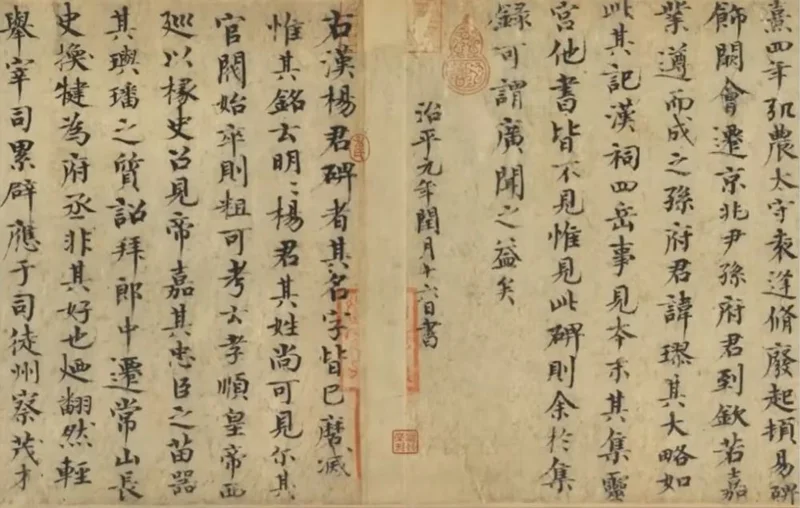 熹四年弘農太守袁逢脩廢起頓易碑
飾闕會遷京兆尹孫府君到欽若嘉
業遵而成之孫府君諱璆其大略如
此其記漢祠四岳事見本末其集靈
宮他書皆不見惟見此碑則余於集
錄可謂廣聞之益矣
治平元年閏月十六日書
右漢楊君碑者其名字皆已磨滅
惟其銘云明〻楊君其姓尚可見尔其
官閥始卒則粗可考云孝順皇帝西
巡以椽史召見帝嘉其忠臣之苗器
其璵璠之質詔拜郎中遷常山長
史換犍為府丞非其好也迺翻然輕
舉宰司累辟應于司徒州察茂才